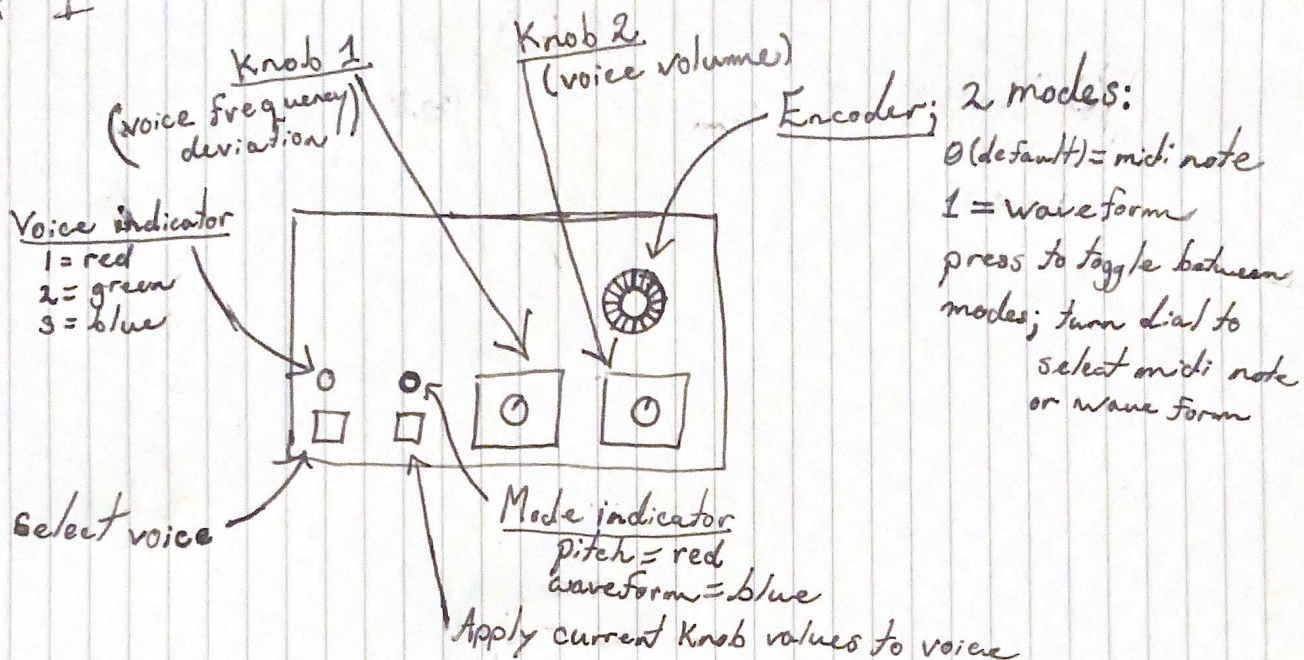 Knob 1
(voice frequency
deviation)
Knob 2
(voice volume)
Encoder; 2 modes:
0(default)= midi note
1 = waveform
press to toggle between
modes; turn dial to
select midi note
or wave form
Voice indicator
1 = red
2 = green
3 = blue
Select voice
Mode indicator
pitch = red
waveform = blue
Apply current Knob values to voice